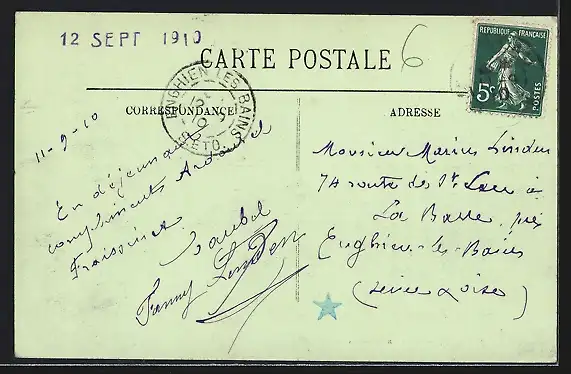 12 SEPT 1910
CARTE POSTALE
6
RÉPUBLIQUE FRANÇAISE
5c
POSTES
ENGHIEN LES BAINS
S.ET.O.
CORRESPONDANCE
ADRESSE
11-9-10
En déjeunant
compliments
Fraissinet
Fanny Linden
Monsieur Marius Linden
74 route de St. Leu à
La Barre, près
Enghien-les-Bains
(Seine & Oise)